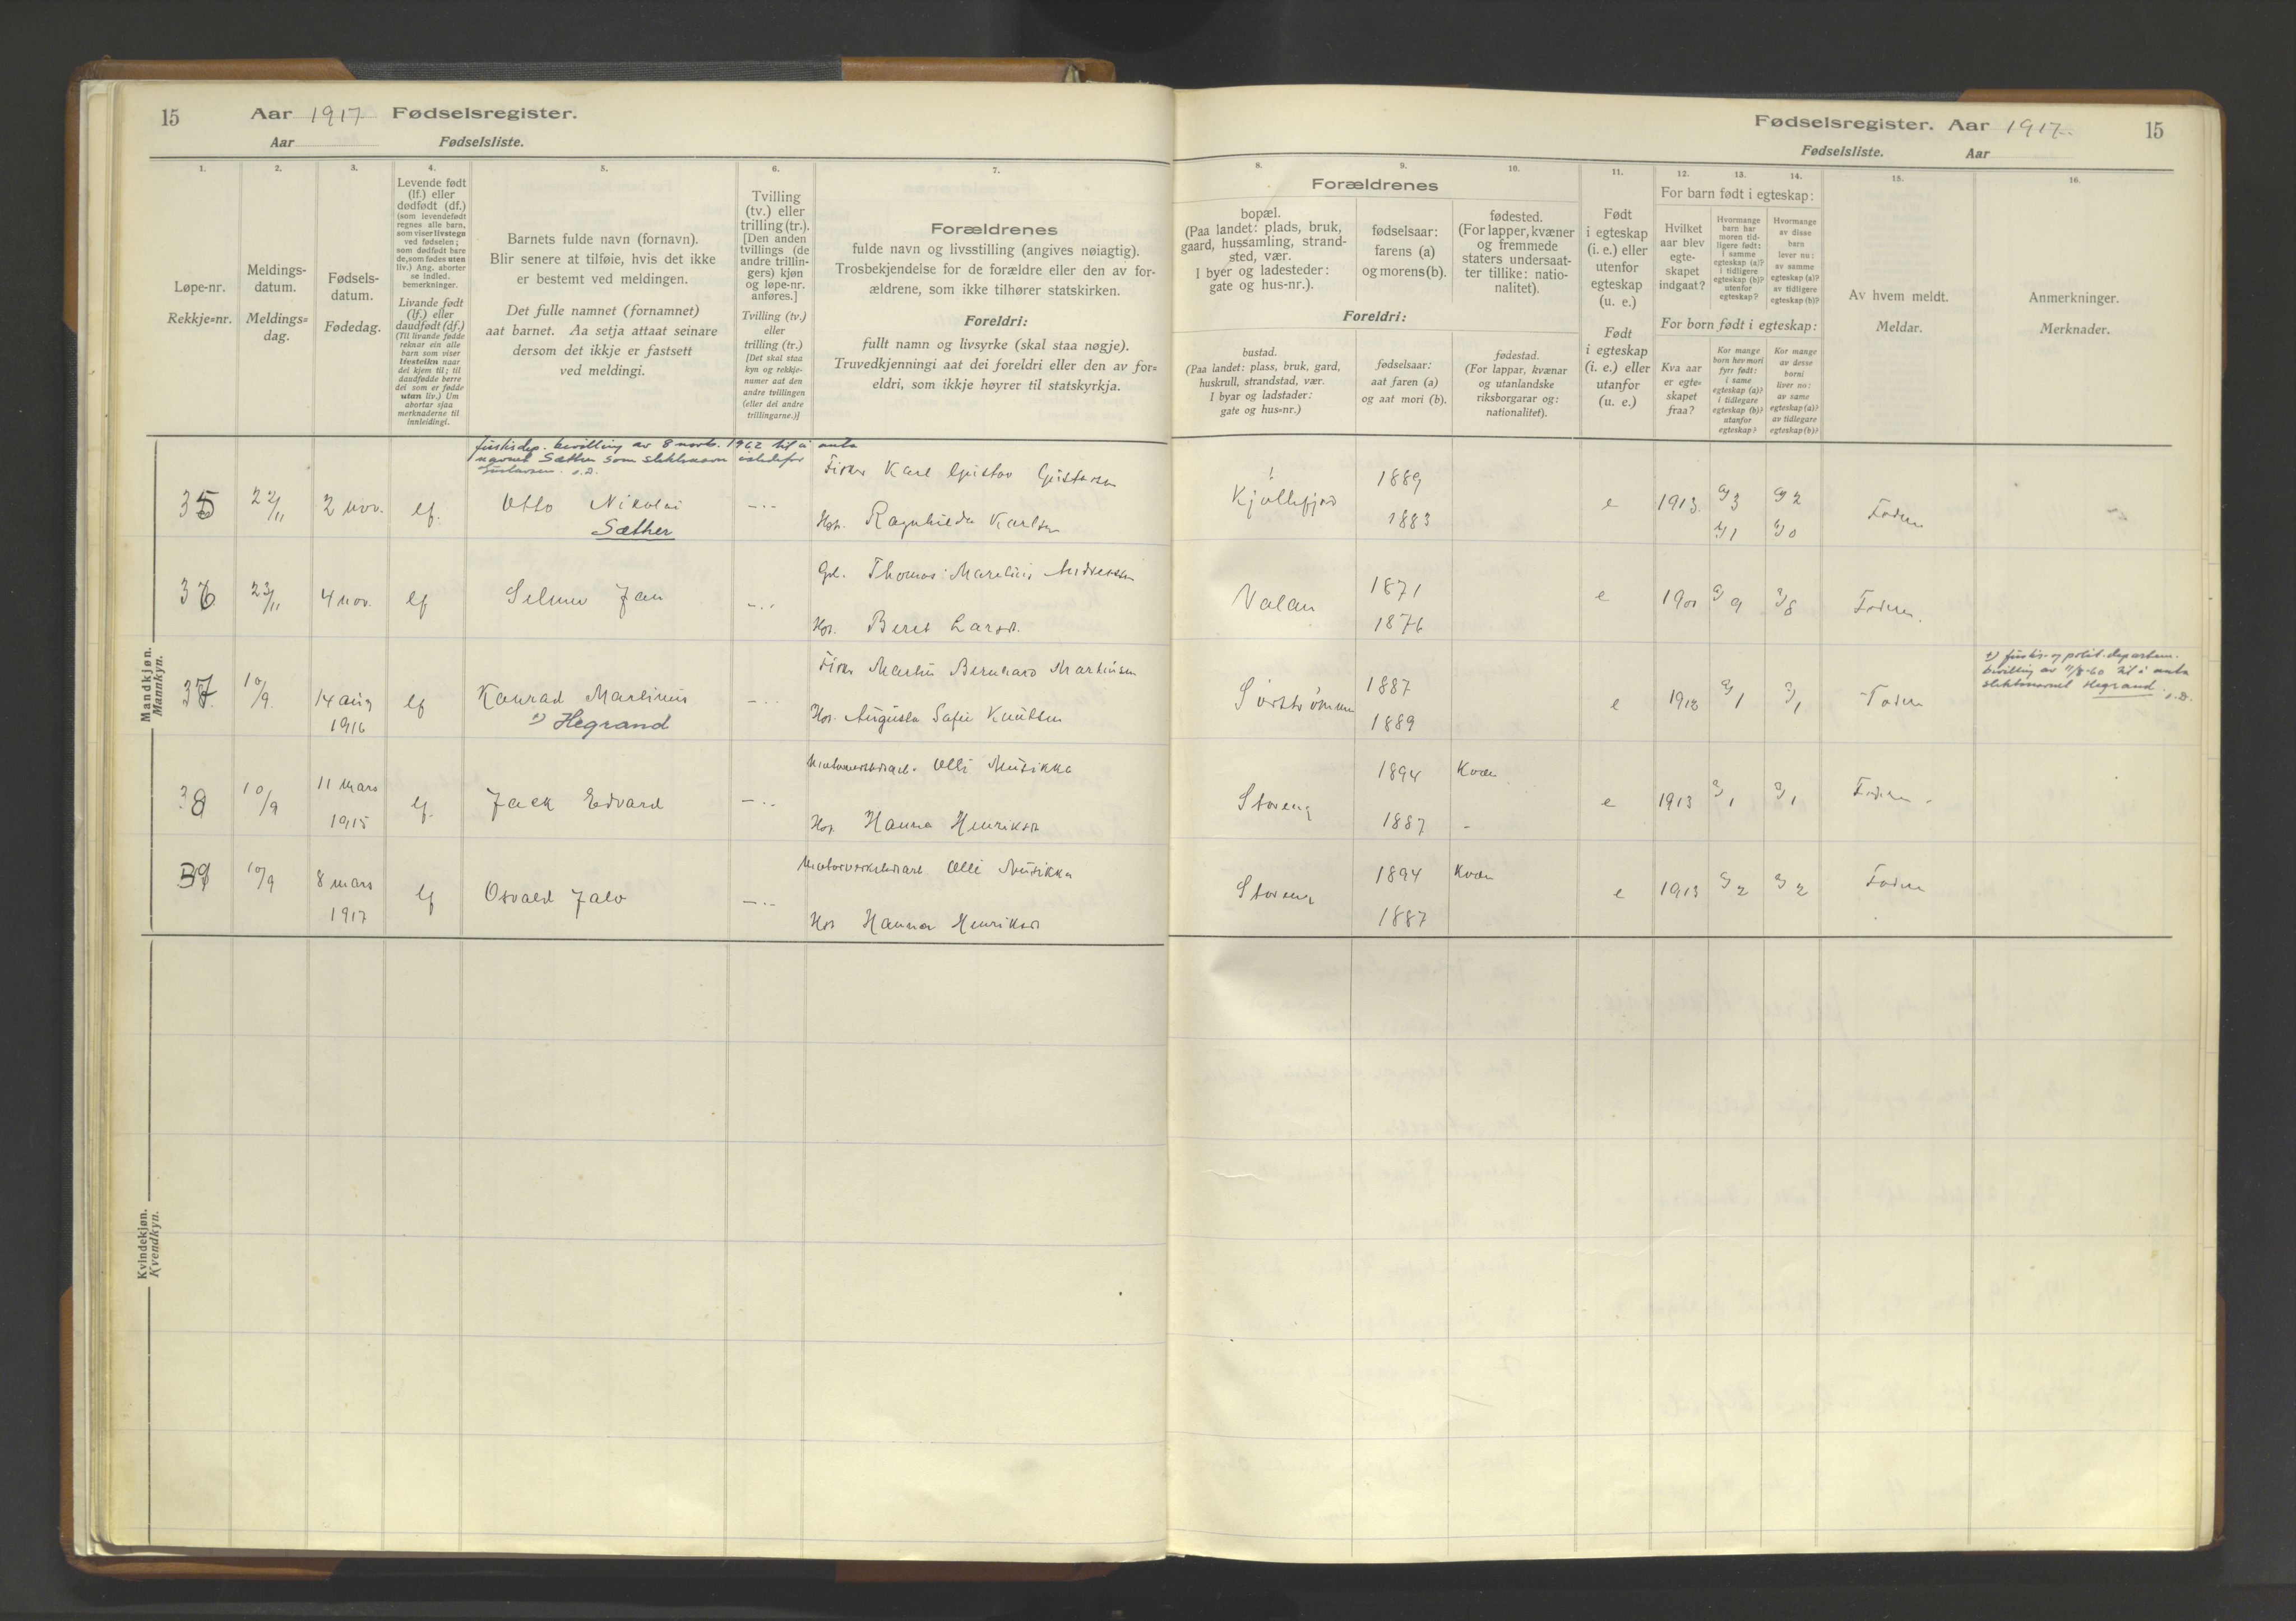 15 Aar 1917 Fødselsregister.
Aar Fødselsliste.
1. 2. 3. 4. 5. 6. 7.
Løpe-nr.
Rekkje=nr.
Meldings-
datum.
Meldings=
dag.
Fødsels-
datum.
Fødedag.
Levende født
(lf.) eller
dødfødt (df.)
(som levendefødt
regnes alle barn,
som viser livstegn
ved fødselen;
som dødfødt bare
de, som fødes uten
liv.) Ang. aborter
se indled.
bemerkninger.
Livande født
(lf.) eller
daudfødt (df.)
(Til livande fødde
reknar ein alle
barn som viser
livsteikn naar
dei kjem til; til
daudfødde berre
dei som er fødde
utan liv.) Um
abortar sjaa
merknaderne til
innleidingi.
Barnets fulde navn (fornavn).
Blir senere at tilføie, hvis det ikke
er bestemt ved meldingen.
Det fulle namnet (fornamnet)
aat barnet. Aa setja attaat seinare
dersom det ikkje er fastsett
ved meldingi.
Tvilling
(tv.) eller
trilling (tr.).
[Den anden
tvillings (de
andre trillin-
gers) kjøn
og løpe-nr.
anføres.]
Tvilling (tv.)
eller
trilling (tr.)
[Det skal staa
kyn og rekkje-
numer aat den
andre tvillingen
(eller dei andre
trillingarne.)]
Forældrenes
fulde navn og livsstilling (angives nøiagtig).
Trosbekjendelse for de forældre eller den av for-
ældrene, som ikke tilhører statskirken.
Foreldri:
fullt namn og livsyrke (skal staa nøgje).
Truvedkjenningi aat dei foreldri eller den av for=
eldri, som ikkje høyrer til statskyrkja.
Fødselsregister. Aar 1917. 15
Fødselsliste. Aar
8. 9. 10. 11. 12. 13. 14. 15. 16.
Forældrenes
bopæl.
(Paa landet: plads, bruk,
gaard, hussamling, strand-
sted, vær.
I byer og ladesteder:
gate og hus-nr.).
Foreldri:
bustad.
(Paa landet: plass, bruk, gard,
huskrull, strandstad, vær.
I byar og ladstader:
gate og hus=nr.)
fødselsaar:
farens (a)
og morens (b).
fødselsaar:
aat faren (a)
og aat mori (b).
fødested.
(For lapper, kvæner
og fremmede
staters undersaat-
ter tillike: natio-
nalitet).
fødestad.
(For lappar, kvænar
og utanlandske
riksborgarar og:
nationalitet).
Født
i egteskap
(i. e.) eller
utenfor
egteskap
(u. e.)
Født
i egteskap
(i. e.) eller
utanfor
(u. e.)
For barn født i egteskap:
Hvilket
aar blev
egte-
skapet
indgaat?
Hvormange
barn har
moren tid-
ligere født:
i samme
egteskap (a)?
i tidligere
egteskap (b)?
utenfor
egteskap?
Hvormange
av disse
barn
lever nu:
av samme
egteskap (a)?
av tidligere
egteskap (b)?
For born født i egteskap:
Kva aar
er egte=
skapet
fraa?
Kor mange
born hev mori
fyrr født:
i same
egteskap (a)?
i tidlegare
egteskap (b)?
utanfor
egteskap?
Kor mange
av desse
borni
liver no:
av same
egteskap (a)?
av tidlegare
egteskap (b)?
Av hvem meldt.
Meldar.
Anmerkninger.
Merknader.
Mandkjøn.
Mannkyn.
Justisdep. bevilling av 8 novb. 1962 til å anta
navnet Sæther som slektsnavn istedefor
Gustavsen. s.D.
35 22/11 2 nov. lf. Otto Nikolai —.— Fisker Karl Gustav Gustavsen
Sæther
Hst. Ragnhilda Karlsen
Kjøllefjord 1889 1883 e 1913 a/3 a/2 Faderen
b/1 b/0
36 23/11 4 nov. lf Selmer Jan —.— Gbr. Thomas Marelius Andreassen
Hst. Beret Larsd.
Valan 1871 1876 e 1900 a/9 a/8 Faderen.
37 10/9 14 aug 1916 lf Konrad Martinus —.— Fisker Martin Bernhard Martinsen
1) Hegrand
Hst. Augusta Sofie Knutsen
Sørstrømmen 1887 1889 e 1912 a/1 a/1 Faderen
1) Justis- og polit.departem.
bevilling av 11/8-60 til å anta
slektsnavnet Hegrand. s.D.
38 10/9 11 mars 1915 lf. Jack Edvard —.— Olli Musikka
Hst. Hanna Henriksd.
Storeng 1894 Kvæn 1887 - e 1913 a/1 a/1 Faderen
39 10/9 8 mars 1917 lf Osvald Jalo —.— Olli Musikka
Hst Hanna Henriksd
Storeng 1894 Kvæn 1887 e 1913 a/2 a/2 Faderen
Kvindekjøn.
Kvendkyn.